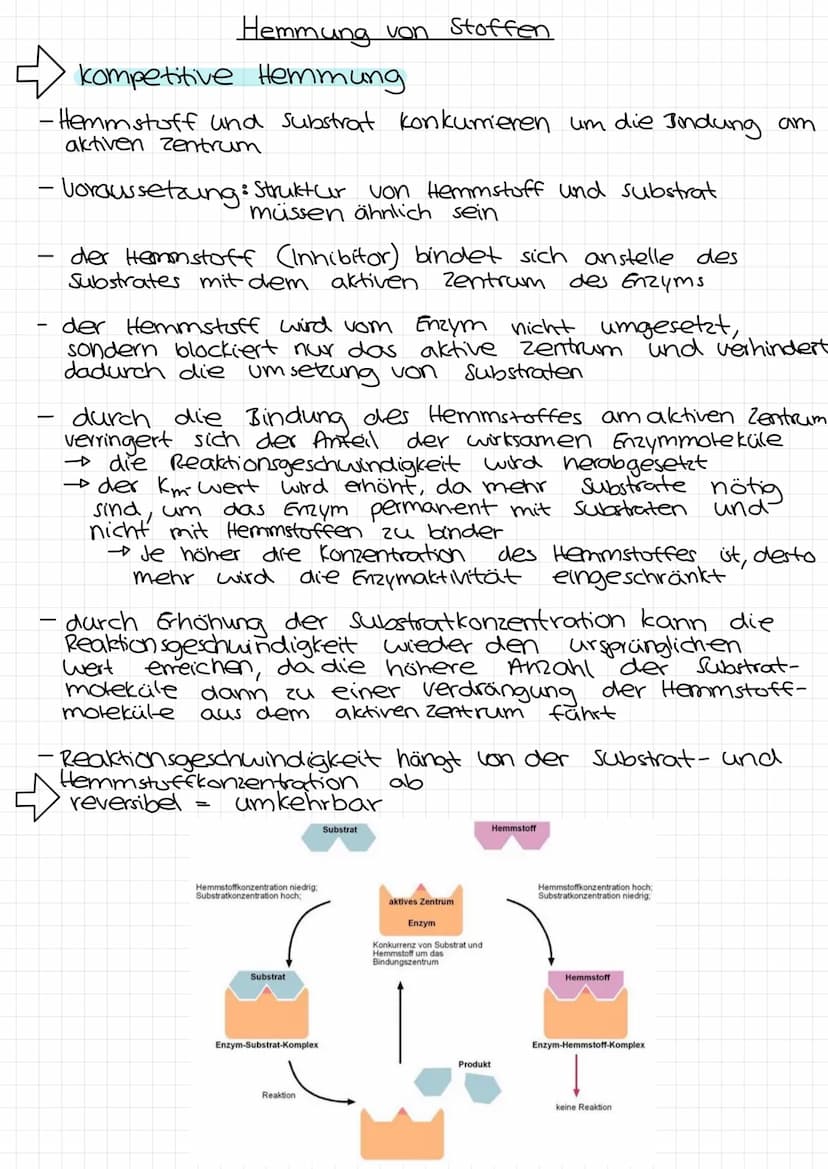 Hemmung von Stoffen
kompetitive Hemmung
- Hemmstoff und Substrat konkurrieren um die Bindung am
aktiven Zentrum
- Voraussetzung: Struktur von Hemmstoff und Substrat
müssen ähnlich sein
- der Hemmstoff (Inhibitor) bindet sich anstelle des
Substrates mit dem aktiven Zentrum des Enzyms
- der Hemmstoff wird vom Enzym nicht umgesetzt,
sondern blockiert nur das aktive Zentrum und verhindert
dadurch die Umsetzung von Substraten
- durch die Bindung des Hemmstoffes am aktiven Zentrum
verringert sich der Anteil der wirksamen Enzymmoleküle
→ die Reaktionsgeschwindigkeit wird herabgesetzt
→ der Km-Wert wird erhöht, da mehr Substrate nötig
sind, um das Enzym permanent mit Substraten und
nicht mit Hemmstoffen zu binden
→ Je höher die Konzentration des Hemmstoffes ist, desto
mehr wird die Enzymaktivität eingeschränkt
- durch Erhöhung der Substratkonzentration kann die
Reaktionsgeschwindigkeit wieder den ursprünglichen
Wert erreichen, da die höhere Anzahl der Substrat-
moleküle dann zu einer Verdrängung der Hemmstoff-
moleküle aus dem aktiven Zentrum führt
- Reaktionsgeschwindigkeit hängt von der Substrat- und
Hemmstoffkonzentration ab
reversibel = umkehrbar
Substrat
Hemmstoff
Hemmstoffkonzentration niedrig;
Substratkonzentration hoch;
aktives Zentrum
Enzym
Hemmstoffkonzentration hoch;
Substratkonzentration niedrig;
Konkurrenz von Substrat und
Hemmstoff um das
Bindungszentrum
Substrat
Hemmstoff
Enzym-Substrat-Komplex
Enzym-Hemmstoff-Komplex
Produkt
Reaktion
keine Reaktion